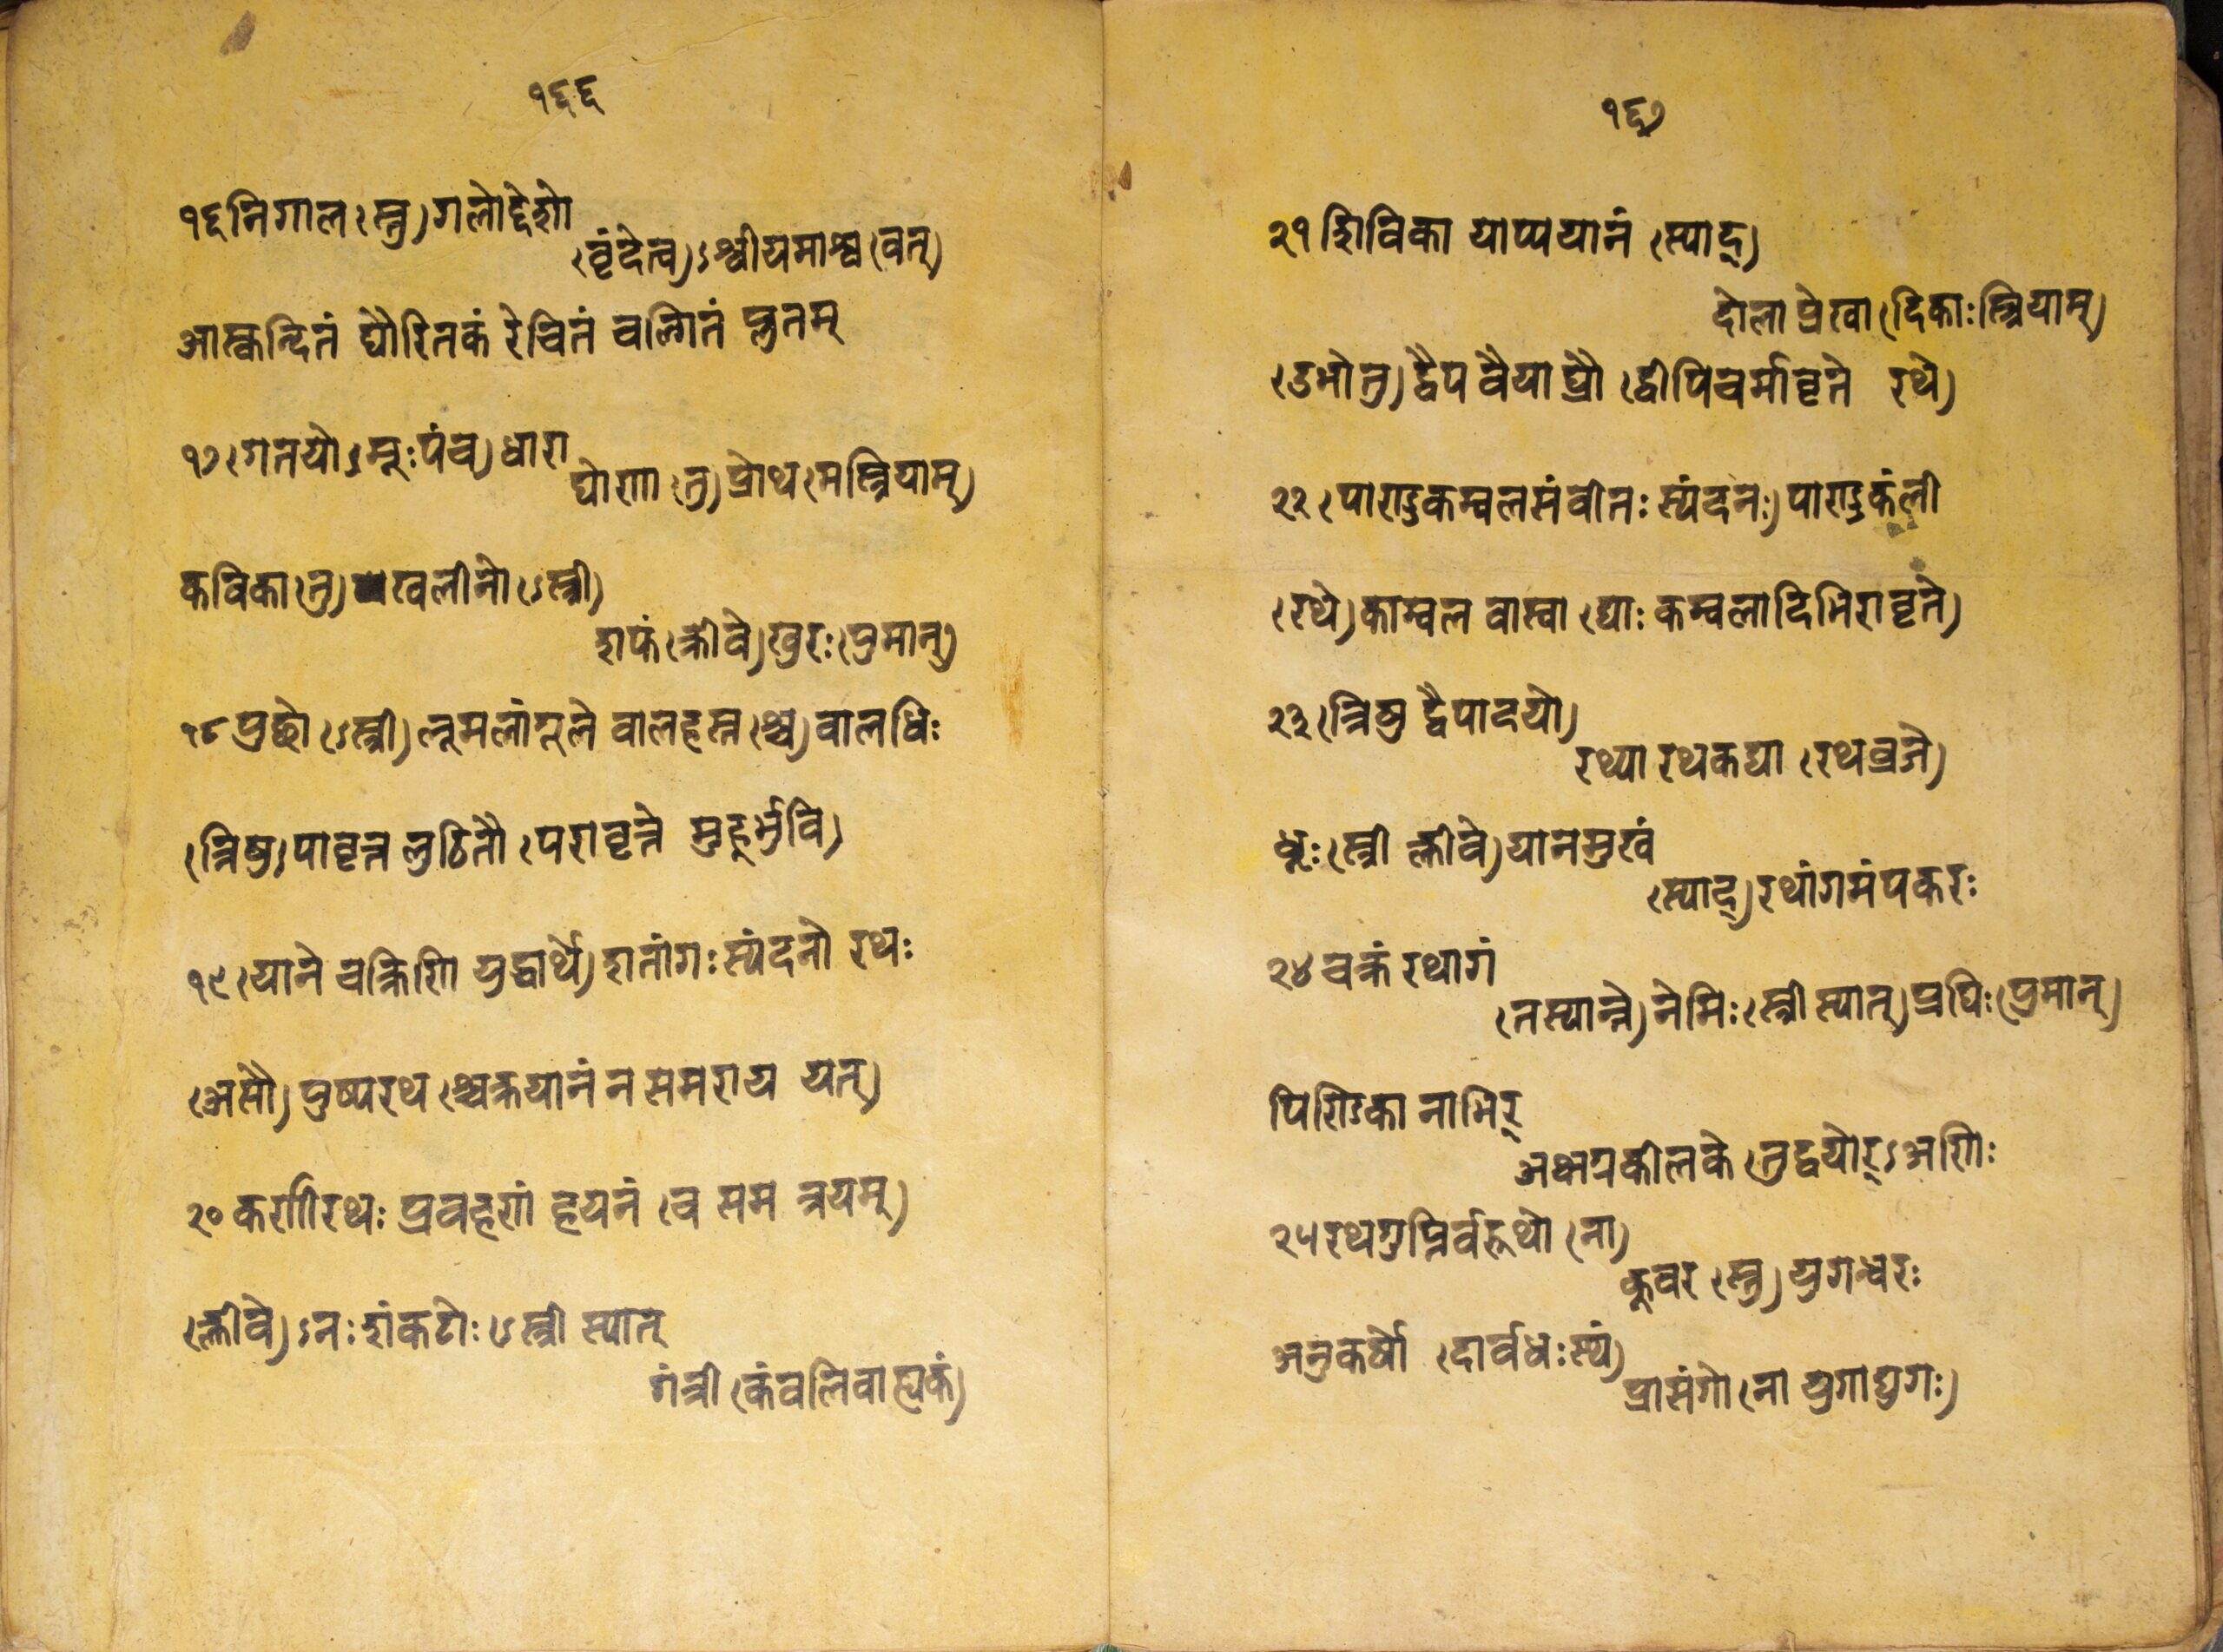 १६६
१६ निगाल (स्तु) गलोद्देशो
(वृंदेत्व) ऽश्वीयमाश्व (वत्)
आस्कन्दितं धौरितकं रेचितं वल्गितं प्लुतम्
१७ (गतयो ऽमूः पंच) धारा
घोणा (तु) प्रोथ (मस्त्रियाम्)
कविका (तु) खलीनो (ऽस्त्री)
शफं (क्लीवे) खुरः (पुमान्)
१८ पुछो (ऽस्त्री) लूमलांगूले वालहस्त (श्च) वालधिः
(त्रिषु) पावृत्त लुठितौ (परावृत्ते मुहुर्भुवि)
१९ (याने चक्रिणि युद्धार्थे) शतांगः स्यंदनो रथः
(असौ) पुष्परथ (श्चक्रयानं न समराय यत्)
२० कर्णीरथः प्रवहणं हयनं (च सम त्रयम्)
(क्लीवे) ऽनः शंकटोः (ऽस्त्री स्यात्
गंत्री (कंवलिवाह्यकं)
१६७
२१ शिविका याप्ययानं (स्याद्)
दोला प्रेखा (दिकाः स्त्रियाम्)
(उभौ तु) द्वैप वैयाघ्रौ (द्वीपिचर्मावृते रथे)
२२ (पाण्डुकम्वलसंवीतः स्यंदनः) पाण्डुकंली
(रथे) काम्वल वास्त्रा (द्याः कम्वलादिभिरावृते)
२३ (त्रिषु द्वैपादयो)
रथ्या रथकद्या (रथव्रजे)
धूः (स्त्री क्लीवे) यानमुखं
(स्याद्) रथांगमंपकरः
२४ चक्रं रथागं
(तस्यान्ते) नेमिः (स्त्री स्यात्) प्रधिः (पुमान्)
पिण्डिका नाभिर्
अक्षाग्रकीलके (तु द्वयोर्) ऽअणिः
२५ रथगुप्तिर्वरूथो (ना)
कूवर (स्तु) युगन्धरः
अनुकर्षो (दार्वधःस्थं)
प्रासंगो (ना युगाद्युगः)